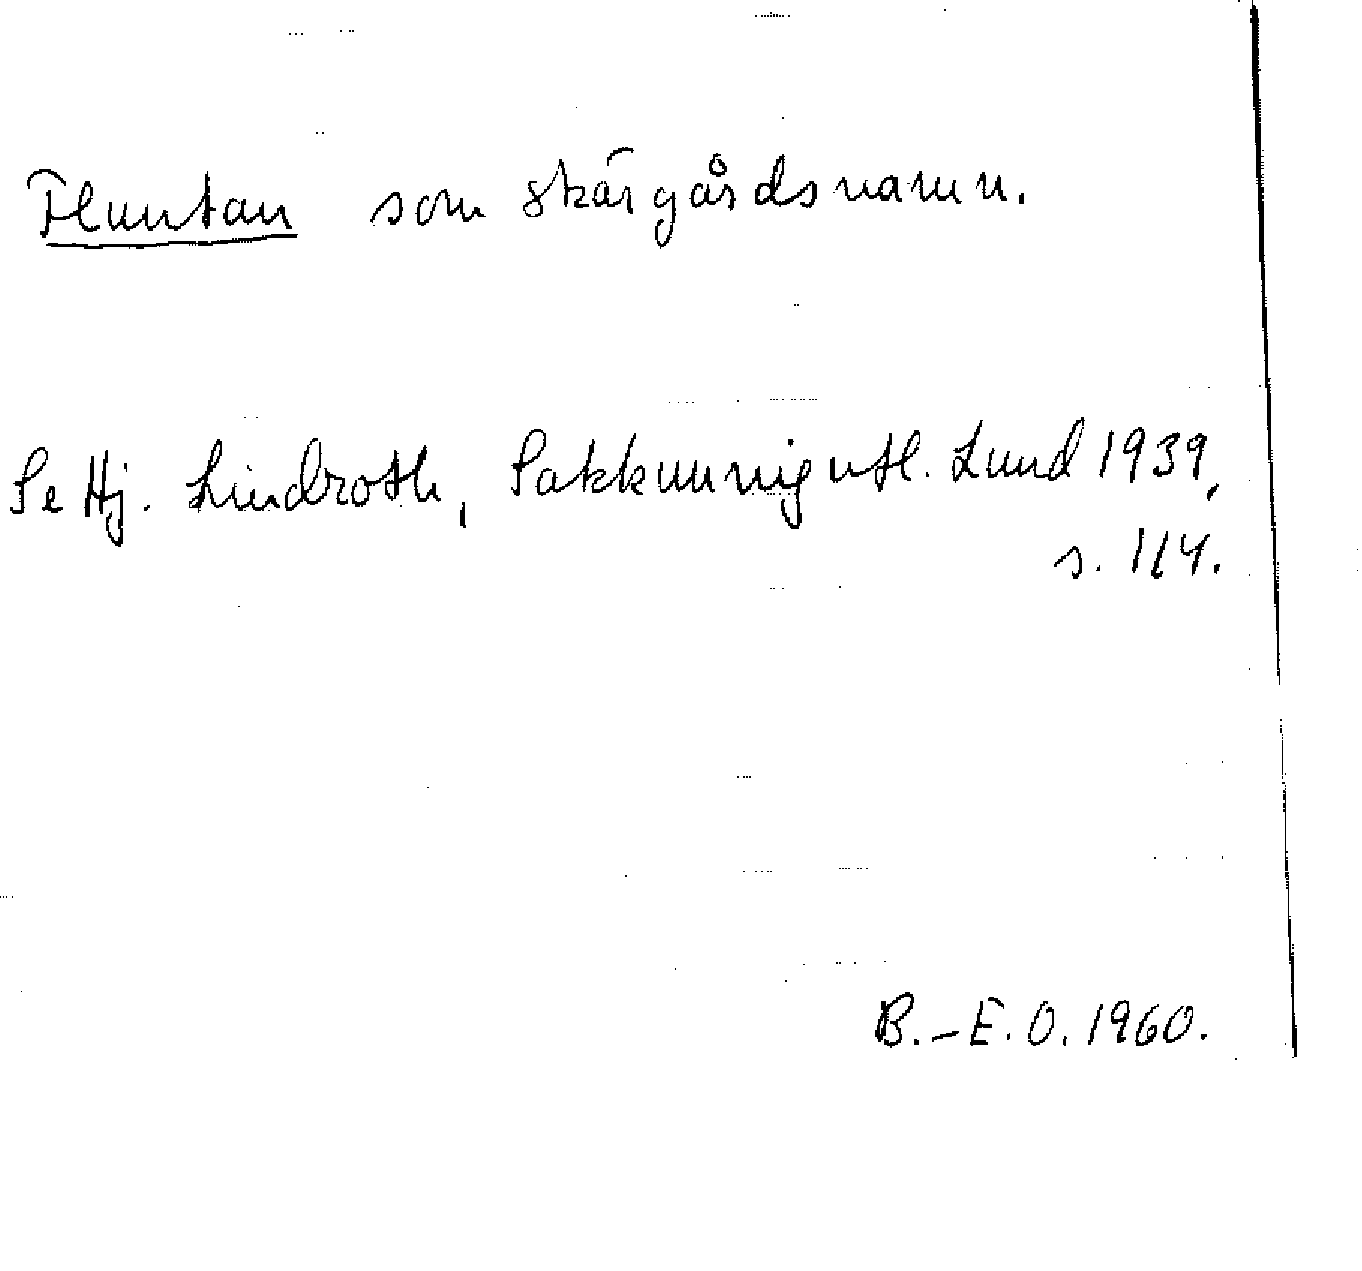 Fluntan som skärgårdsnamn.
Se Hj. Lindroth, Sakkunnigutl. Lund 1939,
s. 114.
B.-E.O. 1960.